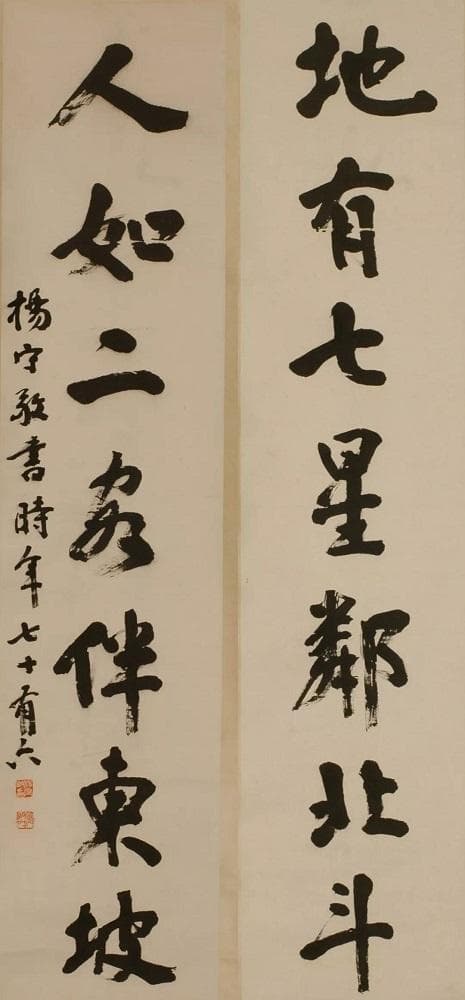 地有七星鄰北斗
人如二客伴東坡
楊守敬書時年七十有六